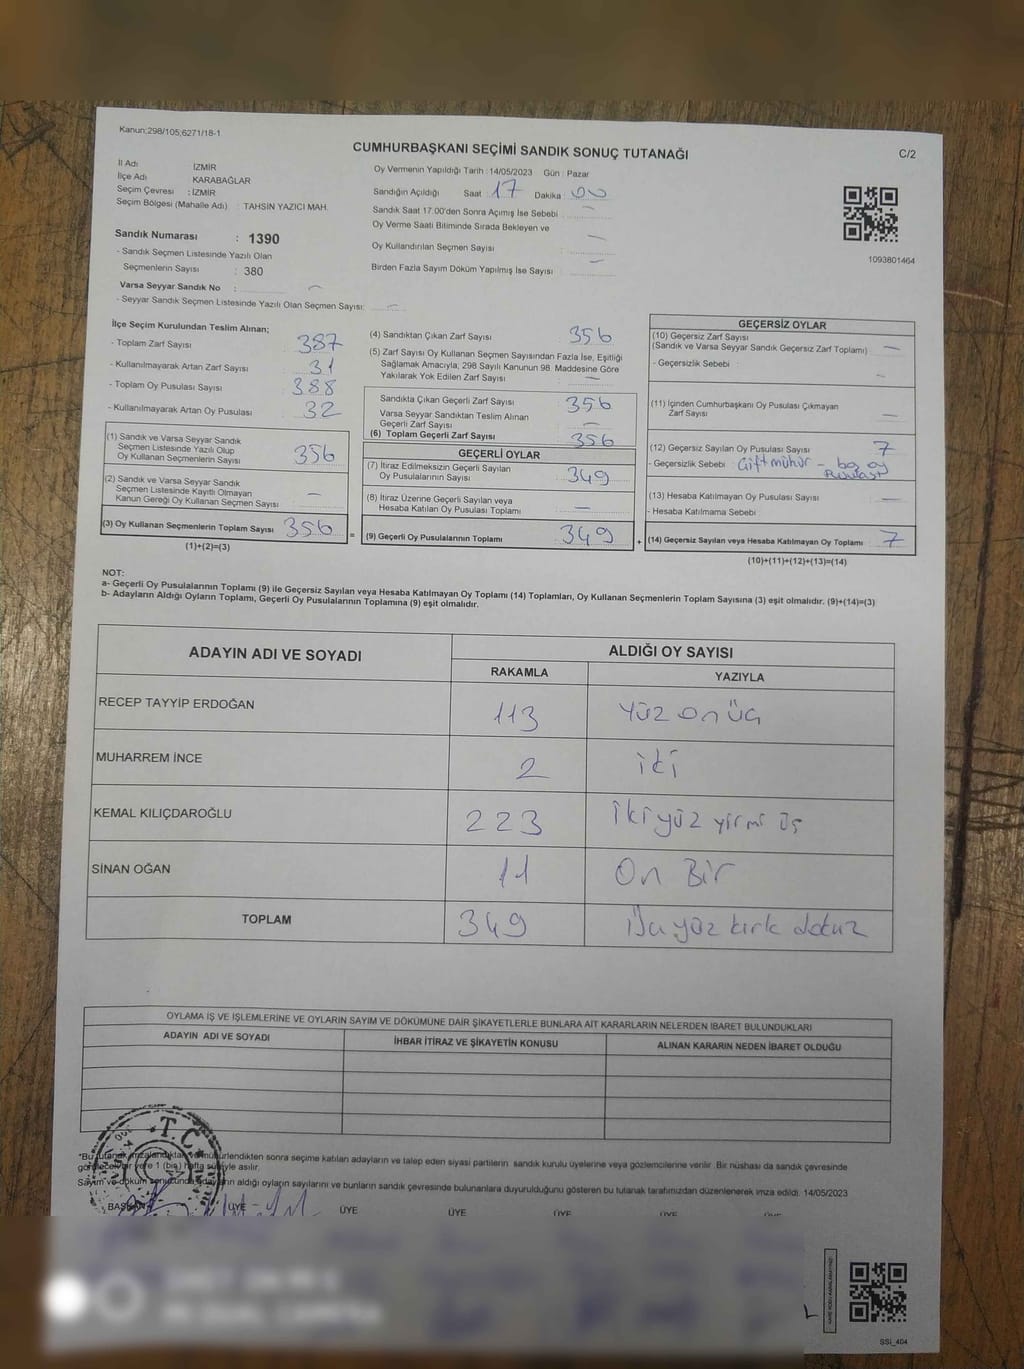 Kanun;298/105;6271/18-1
CUMHURBAŞKANI SEÇİMİ SANDIK SONUÇ TUTANAĞI
C/2
İl Adı İZMİR
İlçe Adı KARABAĞLAR
Seçim Çevresi : İZMİR
Seçim Bölgesi (Mahalle Adı) : TAHSİN YAZICI MAH.
Sandık Numarası : 1390
- Sandık Seçmen Listesinde Yazılı Olan
Seçmenlerin Sayısı : 380
Varsa Seyyar Sandık No :
- Seyyar Sandık Seçmen Listesinde Yazılı Olan Seçmen Sayısı:
Oy Vermenin Yapıldığı Tarih : 14/05/2023 Gün : Pazar
Sandığın Açıldığı Saat : 17 Dakika : 00
Sandık Saat 17.00'den Sonra Açımış İse Sebebi
Oy Verme Saati Bitiminde Sırada Bekleyen ve
Oy Kullandırılan Seçmen Sayısı
Birden Fazla Sayım Döküm Yapılmış İse Sayısı
1093801464
İlçe Seçim Kurulundan Teslim Alınan;
- Toplam Zarf Sayısı 387
- Kullanılmayarak Artan Zarf Sayısı 31
- Toplam Oy Pusulası Sayısı 388
- Kullanılmayarak Artan Oy Pusulası 32
(1) Sandık ve Varsa Seyyar Sandık
Seçmen Listesinde Yazılı Olup
Oy Kullanan Seçmenlerin Sayısı 356
(2) Sandık ve Varsa Seyyar Sandık
Seçmen Listesinde Kayıtlı Olmayan
Kanun Gereği Oy Kullanan Seçmen Sayısı –
(3) Oy Kullanan Seçmenlerin Toplam Sayısı 356
(1)+(2)=(3)
(4) Sandıktan Çıkan Zarf Sayısı 356
(5) Zarf Sayısı Oy Kullanan Seçmen Sayısından Fazla İse, Eşitliği
Sağlamak Amacıyla, 298 Sayılı Kanunun 98. Maddesine Göre
Yakılarak Yok Edilen Zarf Sayısı –
Sandıkta Çıkan Geçerli Zarf Sayısı 356
Varsa Seyyar Sandıktan Teslim Alınan
Geçerli Zarf Sayısı –
(6) Toplam Geçerli Zarf Sayısı 356
GEÇERLİ OYLAR
(7) İtiraz Edilmeksizin Geçerli Sayılan
Oy Pusulalarının Sayısı 349
(8) İtiraz Üzerine Geçerli Sayılan veya
Hesaba Katılan Oy Pusulası Toplamı –
= (9) Geçerli Oy Pusulalarının Toplamı 349 +
GEÇERSİZ OYLAR
(10) Geçersiz Zarf Sayısı
(Sandık ve Varsa Seyyar Sandık Geçersiz Zarf Toplamı) –
- Geçersizlik Sebebi : –
(11) İçinden Cumhurbaşkanı Oy Pusulası Çıkmayan
Zarf Sayısı –
(12) Geçersiz Sayılan Oy Pusulası Sayısı 7
- Geçersizlik Sebebi Çift mühür – boş oy
Pusulası
(13) Hesaba Katılmayan Oy Pusulası Sayısı –
- Hesaba Katılmama Sebebi
(14) Geçersiz Sayılan veya Hesaba Katılmayan Oy Toplamı 7
(10)+(11)+(12)+(13)=(14)
NOT:
a- Geçerli Oy Pusulalarının Toplamı (9) ile Geçersiz Sayılan veya Hesaba Katılmayan Oy Toplamı (14) Toplamları, Oy Kullanan Seçmenlerin Toplam Sayısına (3) eşit olmalıdır. (9)+(14)=(3)
b- Adayların Aldığı Oyların Toplamı, Geçerli Oy Pusulalarının Toplamına (9) eşit olmalıdır.
ADAYIN ADI VE SOYADI ALDIĞI OY SAYISI
RAKAMLA YAZIYLA
RECEP TAYYİP ERDOĞAN 113 Yüz on üç
MUHARREM İNCE 2 iki
KEMAL KILIÇDAROĞLU 223 İki yüz yirmi üç
SİNAN OĞAN 11 On Bir
TOPLAM 349 Üç yüz kırk dokuz
OYLAMA İŞ VE İŞLEMLERİNE VE OYLARIN SAYIM VE DÖKÜMÜNE DAİR ŞİKAYETLERLE BUNLARA AİT KARARLARIN NELERDEN İBARET BULUNDUKLARI
ADAYIN ADI VE SOYADI İHBAR İTİRAZ VE ŞİKAYETİN KONUSU ALINAN KARARIN NEDEN İBARET OLDUĞU
T.C.
sonra seçime katılan adayların ve talep eden siyasi partilerin sandık kurulu üyelerine veya gözlemcilerine verilir. Bir nüshası da sandık çevresinde
1 (bir) hafta süreyle asılır.
aldığı oyların sayılarını ve bunların sandık çevresinde bulunanlara duyurulduğunu gösteren bu tutanak tarafımızdan düzenlenerek imza edildi. 14/05/2023
BAŞKAN ÜYE ÜYE ÜYE ÜYE ÜYE ÜYE
SSİ_404